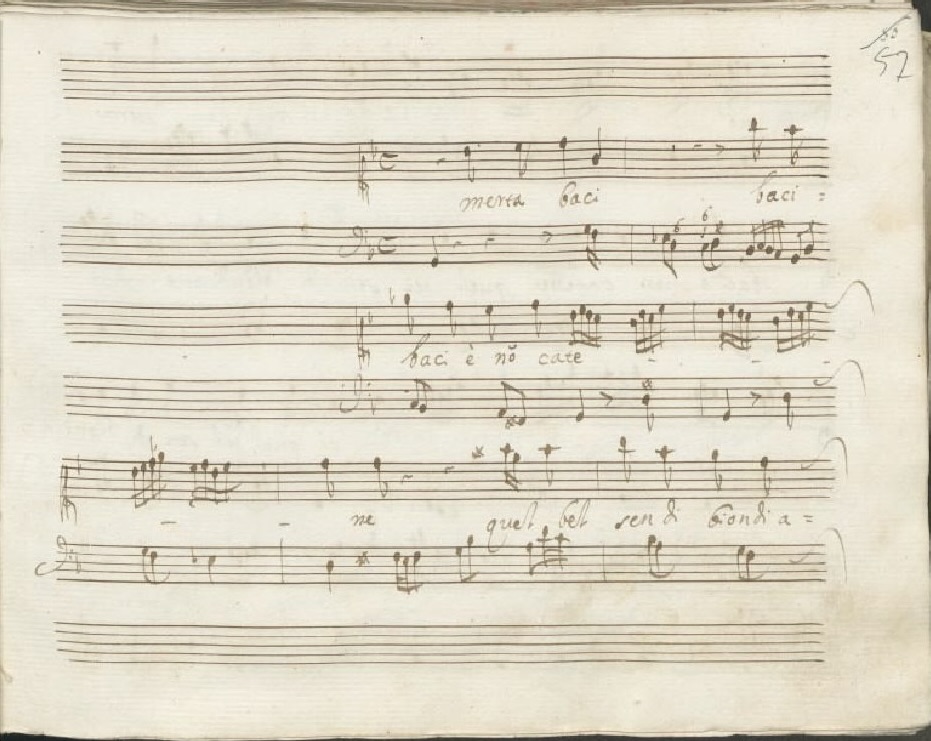 57
merta baci baci =
6 6
baci è nõ cate - - -
- - ne quel bel sen di biondi a =